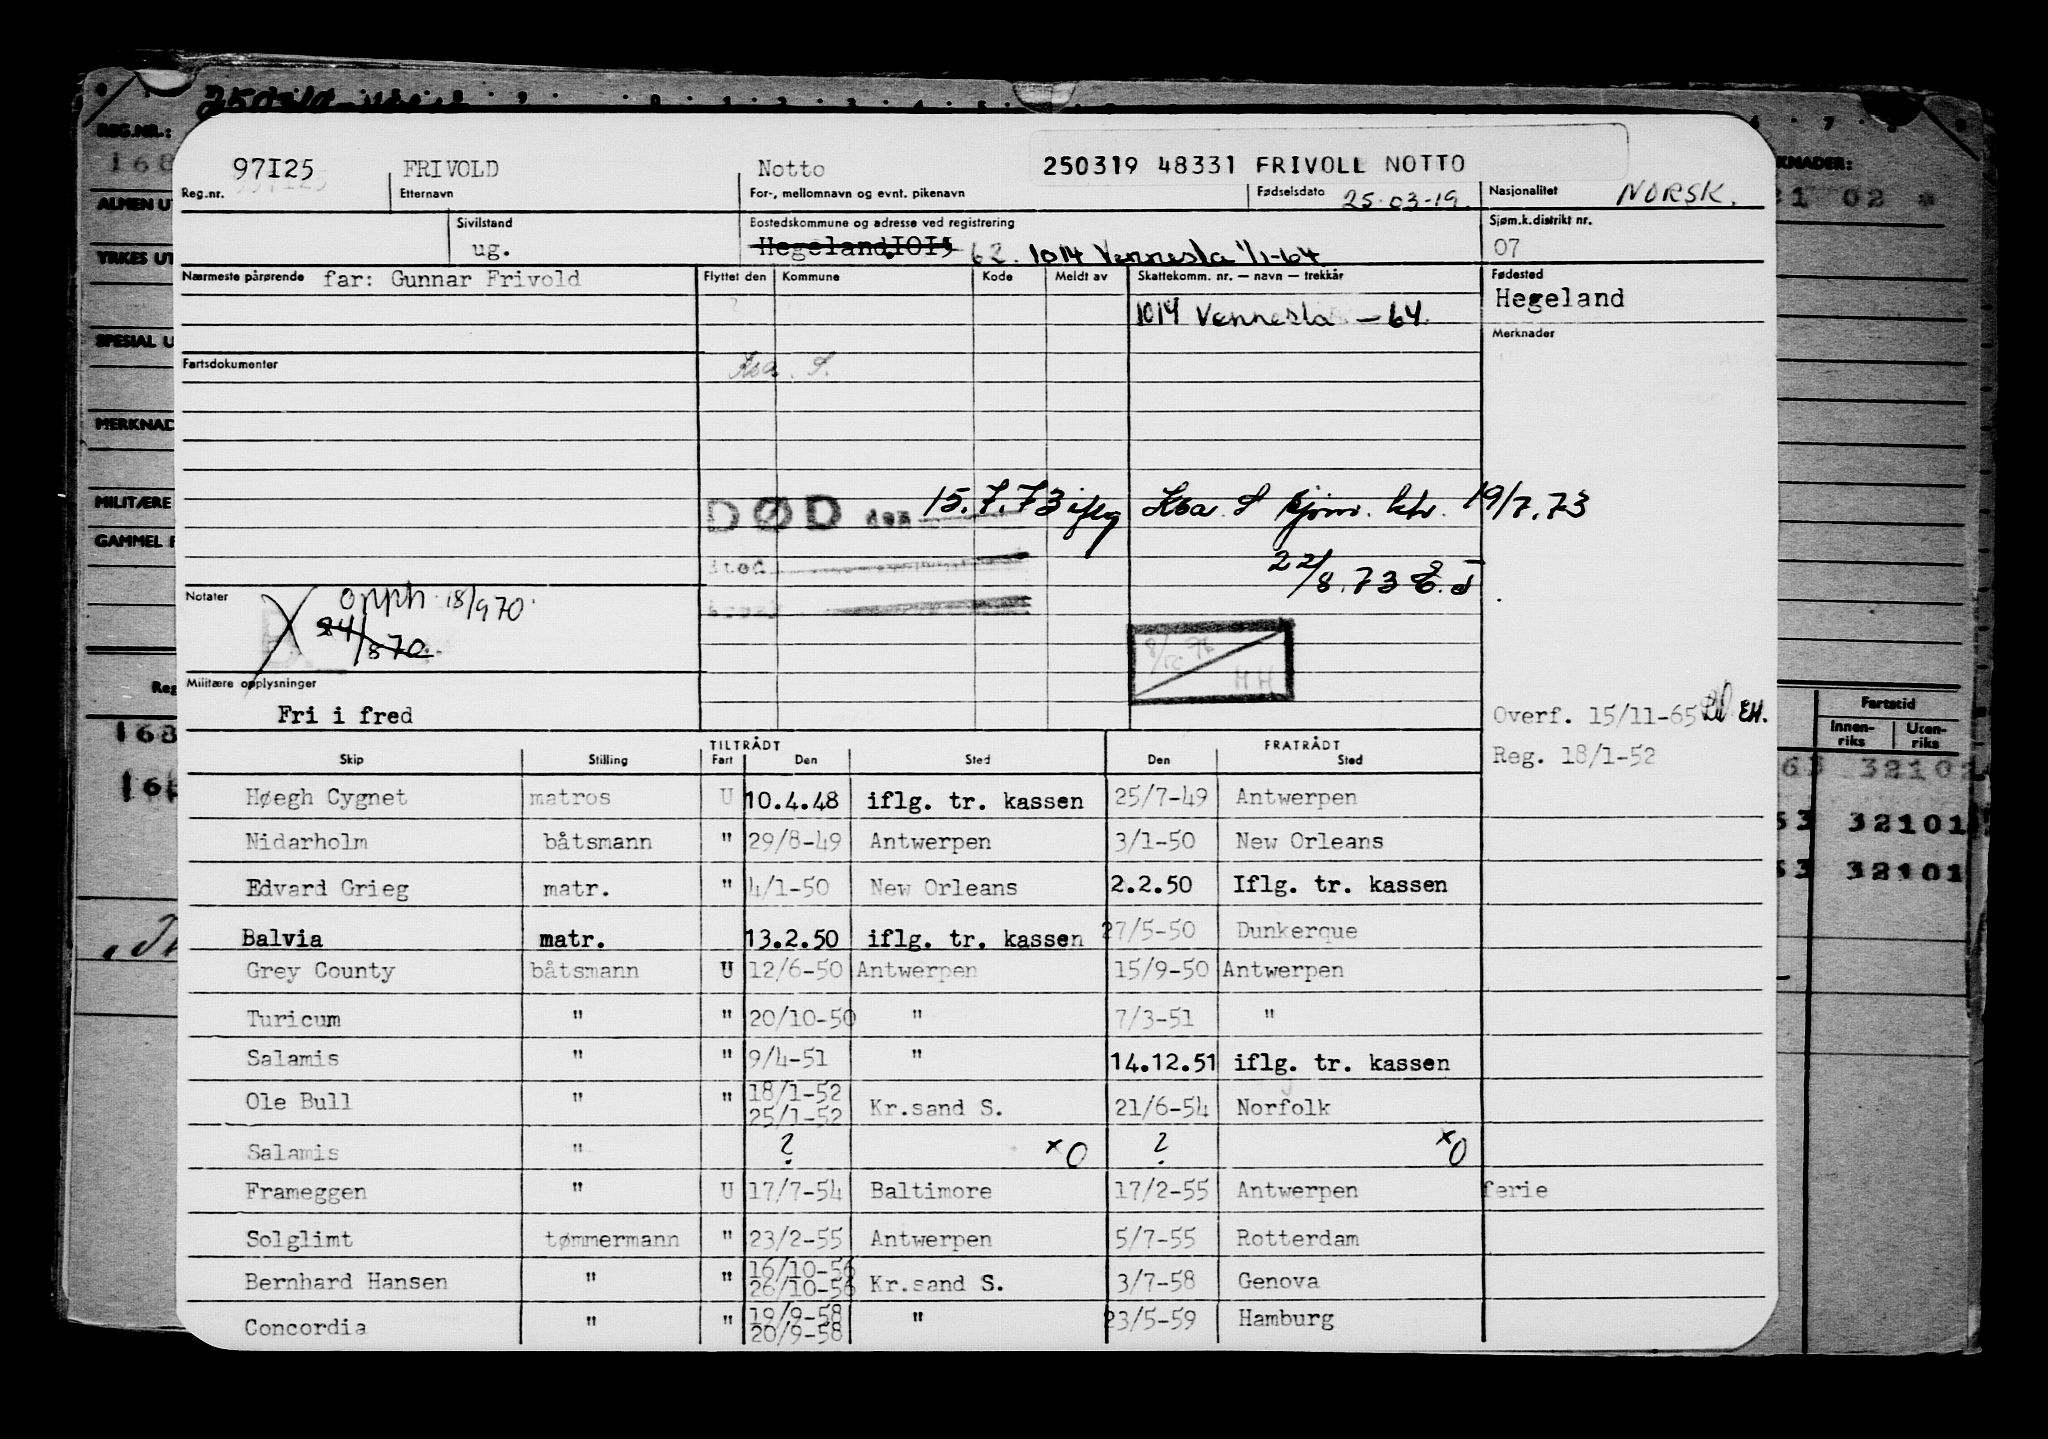 97I25 FRIVOLD Notto 250319 48331 FRIVOLL NOTTO
Reg.nr. Etternavn For-, mellomnavn og evnt. pikenavn Fødselsdato 25.03-19. Nasjonalitet NORSK.
Sivilstand Bostedskommune og adresse ved registrering Sjøm.k.distrikt nr.
ug. Hegeland 62. 1014 Vennesla 1/1-64 07
Nærmeste pårørende far: Gunnar Frivold Flyttet den Kommune Kode Meldt av Skattekomm. nr. — navn — trekkår Fødested
Hegeland
1014 Vennesla - 64.
Merknader
Fartsdokumenter
Kba. S.
DØD den 15.7.73 iflg Kba. S sjøm. ktr. 19/7.73
sted
22/8.73
Notater
opph. 18/9 70.
24/8 70.
8/12
HH
Militære opplysninger
Fri i fred
Overf. 15/11-65 EH.
Reg. 18/1-52
TILTRÅDT FRATRÅDT
Skip Stilling Fart Den Sted Den Sted
Høegh Cygnet matros U 10.4.48 iflg. tr. kassen 25/7-49 Antwerpen
Nidarholm båtsmann " 29/8-49 Antwerpen 3/1-50 New Orleans
Edvard Grieg matr. " 4/1-50 New Orleans 2.2.50 Iflg. tr. kassen
Balvia matr. 13.2.50 iflg. tr. kassen 27/5-50 Dunkerque
Grey County båtsmann U 12/6-50 Antwerpen 15/9-50 Antwerpen
Turicum " " 20/10-50 " 7/3-51 "
Salamis " " 9/4-51 " 14.12.51 iflg. tr. kassen
Ole Bull " " 18/1-52 25/1-52 Kr.sand S. 21/6-54 Norfolk
Salamis " ? x0 ? x0
Frameggen " U 17/7-54 Baltimore 17/2-55 Antwerpen ferie
Solglimt tømmermann " 23/2-55 Antwerpen 5/7-55 Rotterdam
Bernhard Hansen " " 16/10-56 26/10-56 Kr.sand S. 3/7-58 Genova
Concordia " " 19/9-58 20/9-58 " 23/5-59 Hamburg
REG.NR.:
168
ALMEN UT
YRKES UT
SPESIAL U
MERKNAD
MILITÆRE
GAMMEL
Reg
168
KNADER:
21 02
Fartstid
Innen-riks Uten-riks
63 32101
63 32101
53 32101